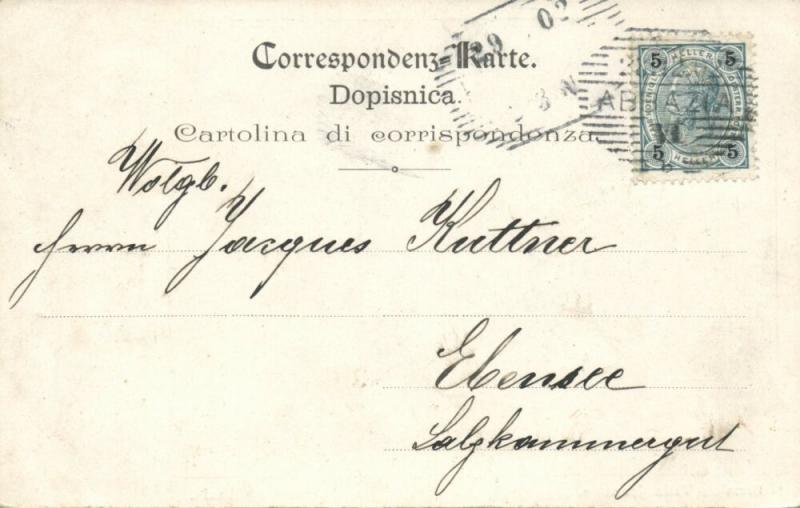 Correspondenz-Karte.
Dopisnica.
Cartolina di corrispondenza.
29 02
ABBAZIA
5 HELLER 5
5 HELLER 5
Wolgb.
Herrn Jacques Kuttner
Ebensee
Salzkammergut